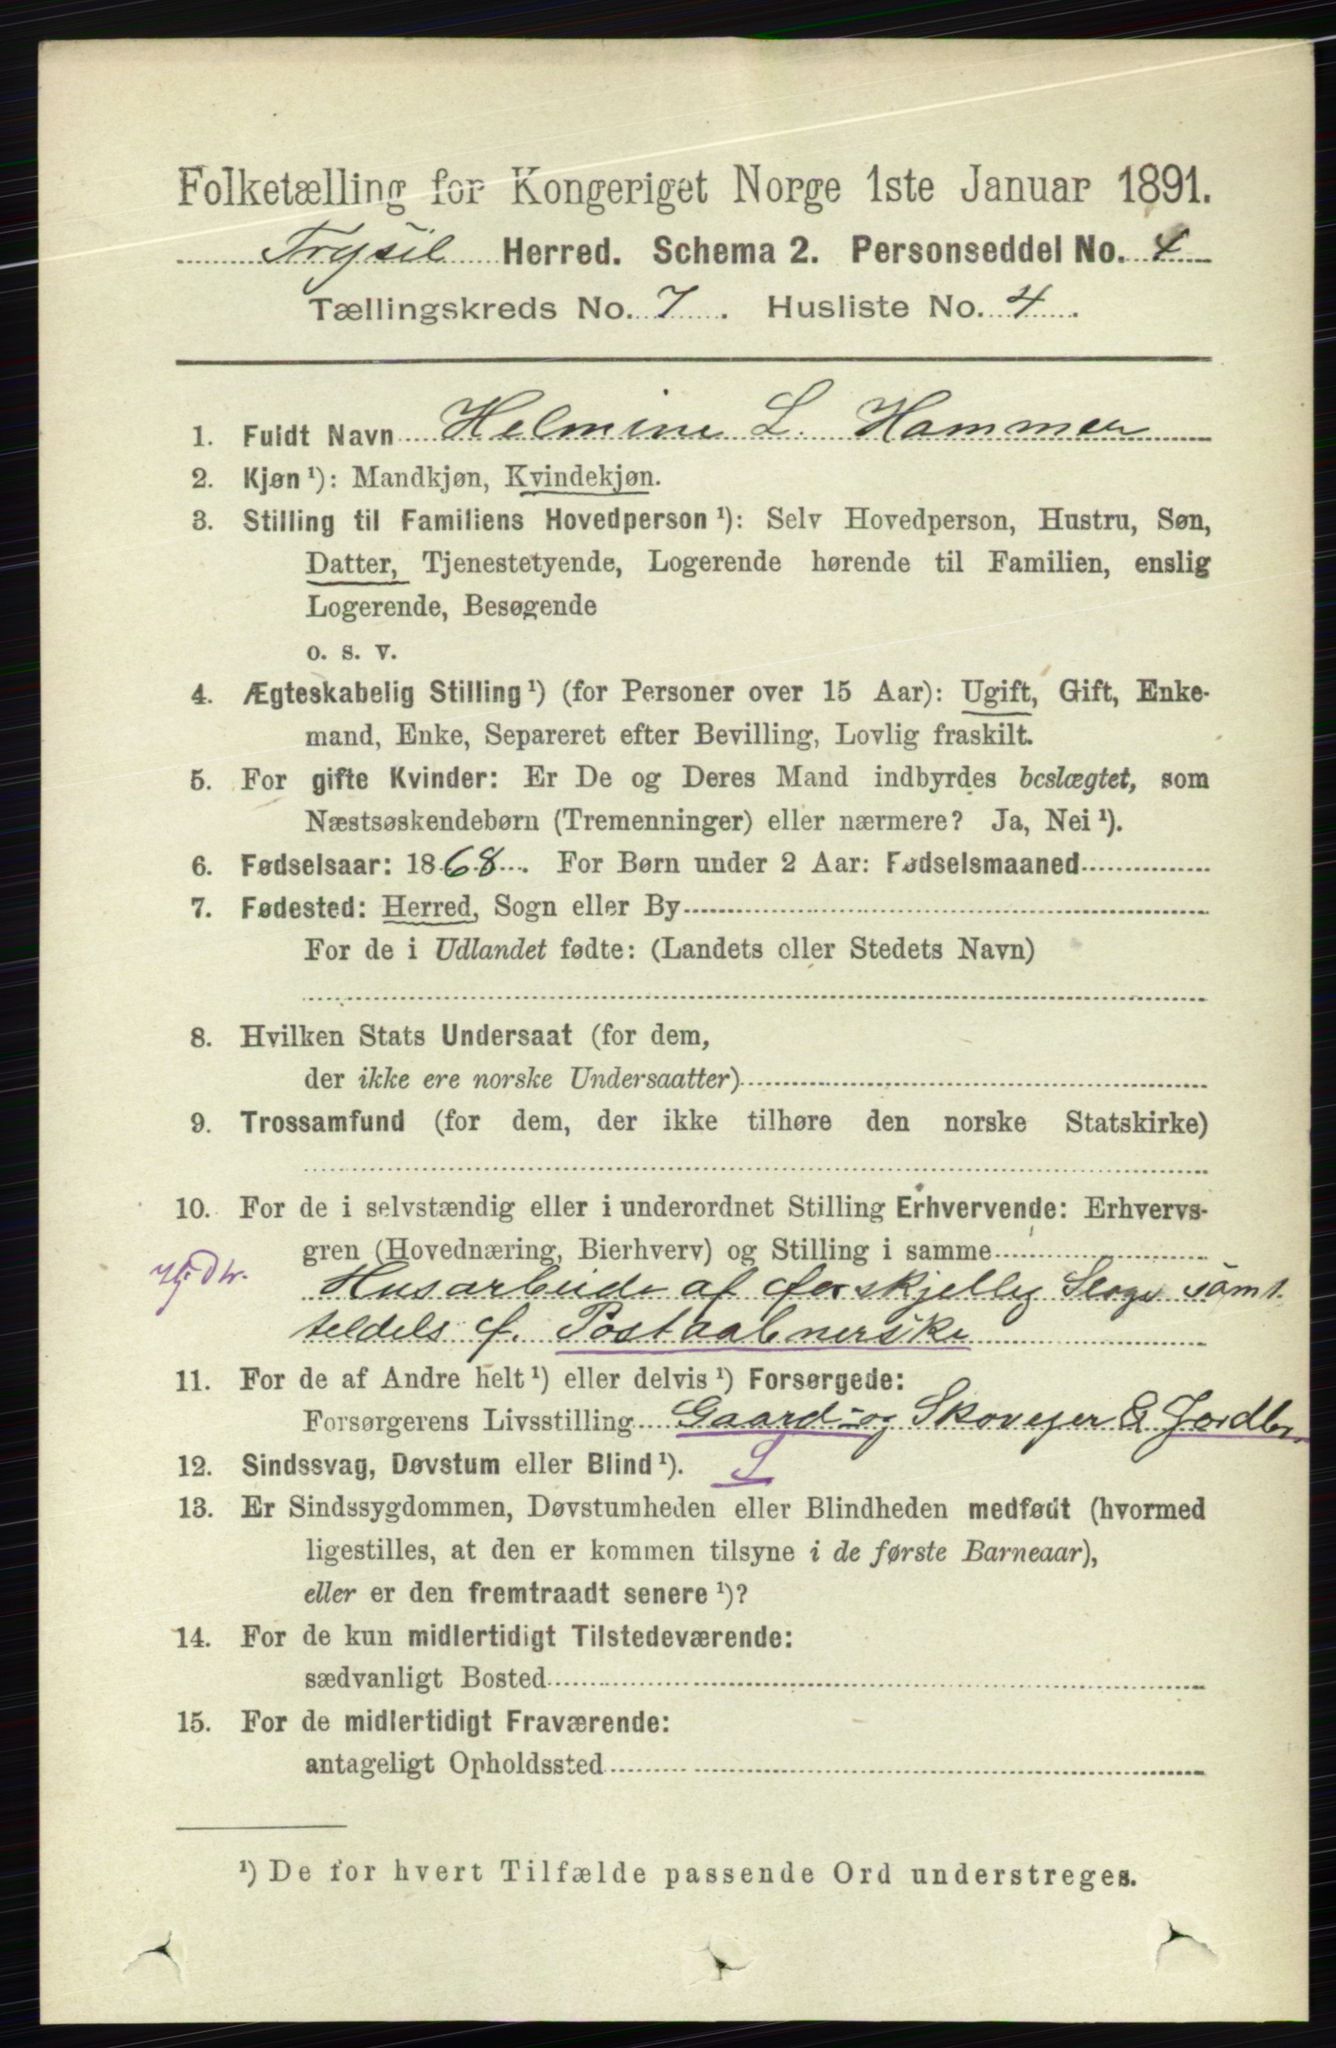 Folketælling for Kongeriget Norge 1ste Januar 1891.
Trysil Herred. Schema 2. Personseddel No. 4
Tællingskreds No. 7. Husliste No. 4.
1. Fuldt Navn Helmine L. Hammer
2. Kjøn ¹): Mandkjøn, Kvindekjøn.
3. Stilling til Familiens Hovedperson ¹): Selv Hovedperson, Hustru, Søn,
Datter, Tjenestetyende, Logerende hørende til Familien, enslig
Logerende, Besøgende
o. s. v.
4. Ægteskabelig Stilling ¹) (for Personer over 15 Aar): Ugift, Gift, Enke-
mand, Enke, Separeret efter Bevilling, Lovlig fraskilt.
5. For gifte Kvinder: Er De og Deres Mand indbyrdes beslægtet, som
Næstsøskendebørn (Tremenninger) eller nærmere? Ja, Nei ¹).
6. Fødselsaar: 1868. For Børn under 2 Aar: Fødselsmaaned
7. Fødested: Herred, Sogn eller By
For de i Udlandet fødte: (Landets eller Stedets Navn)
8. Hvilken Stats Undersaat (for dem,
der ikke ere norske Undersaatter)
9. Trossamfund (for dem, der ikke tilhøre den norske Statskirke)
10. For de i selvstændig eller i underordnet Stilling Erhvervende: Erhvervs-
gren (Hovednæring, Bierhverv) og Stilling i samme
Husarbeide af forskjellig Slags samt
teldels f. Postaabnerske
11. For de af Andre helt ¹) eller delvis ¹) Forsørgede:
Forsørgerens Livsstilling Gaard- og Skovejer & Jordbr.
12. Sindssvag, Døvstum eller Blind ¹). S
13. Er Sindssygdommen, Døvstumheden eller Blindheden medfødt (hvormed
ligestilles, at den er kommen tilsyne i de første Barneaar),
eller er den fremtraadt senere ¹)?
14. For de kun midlertidigt Tilstedeværende:
sædvanligt Bosted
15. For de midlertidigt Fraværende:
antageligt Opholdssted
¹) De for hvert Tilfælde passende Ord understreges.